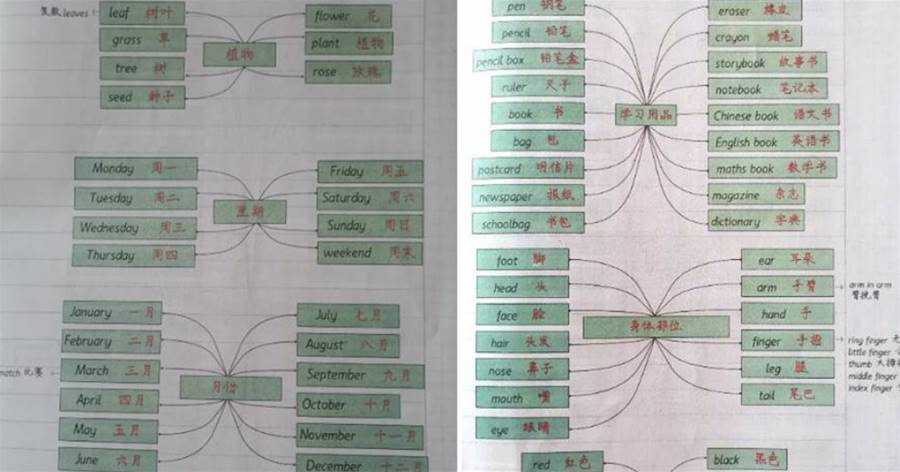 复数 leaves
leaf 树叶
grass 草
tree 树
seed 种子
植物
flower 花
plant 植物
rose 玫瑰
Monday 周一
Tuesday 周二
Wednesday 周三
Thursday 周四
星期
Friday 周五
Saturday 周六
Sunday 周日
weekend 周末
January 一月
February 二月
March 三月
match 比赛
April 四月
May 五月
June 六月
月份
July 七月
August 八月
September 九月
October 十月
November 十一月
December 十二月
pen 钢笔
pencil 铅笔
pencil box 铅笔盒
ruler 尺子
book 书
bag 包
postcard 明信片
newspaper 报纸
schoolbag 书包
学习用品
eraser 橡皮
crayon 蜡笔
storybook 故事书
notebook 笔记本
Chinese book 语文书
English book 英语书
maths book 数学书
magazine 杂志
dictionary 字典
foot 脚
head 头
face 脸
hair 头发
nose 鼻子
mouth 嘴
eye 眼睛
身体部位
ear 耳朵
arm 手臂
arm in arm
臂挽臂
hand 手
finger 手指
ring finger 无
little finger
thumb 大拇
middle finger
index finger
leg 腿
tail 尾巴
red 红色
black 黑色